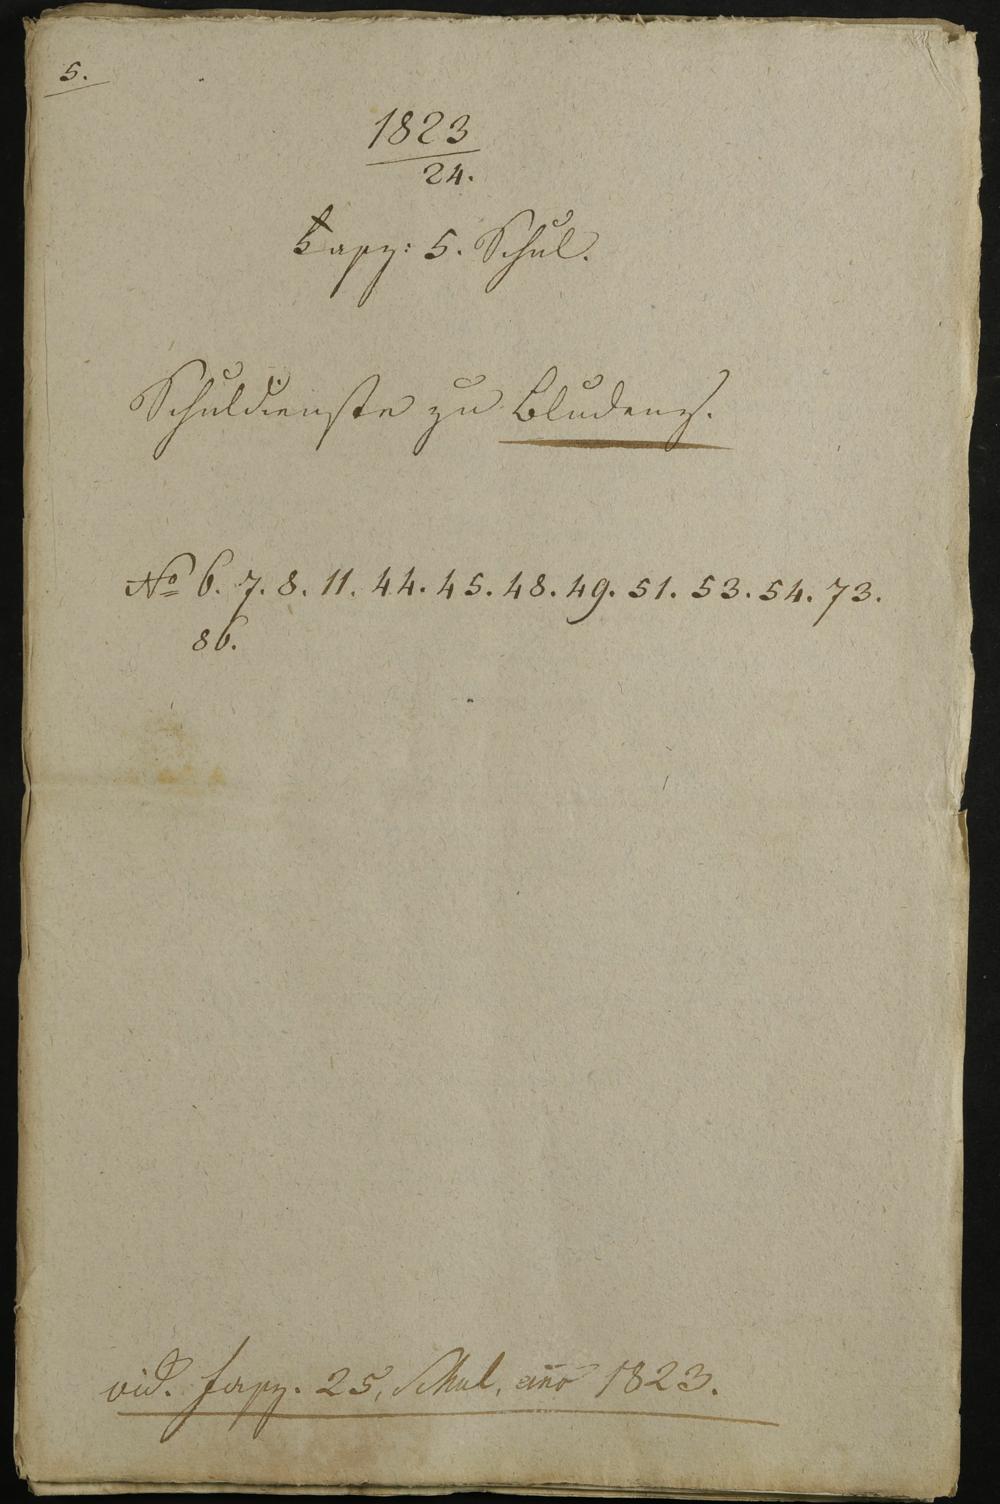 5.
1823
24.
Fasz: 5. Schul.
Schuldienste zu Bludenz.
No 6. 7. 8. 11. 44. 45. 48. 49. 51. 53. 54. 73.
86.
vid. Fasz. 25, Schul. año 1823.